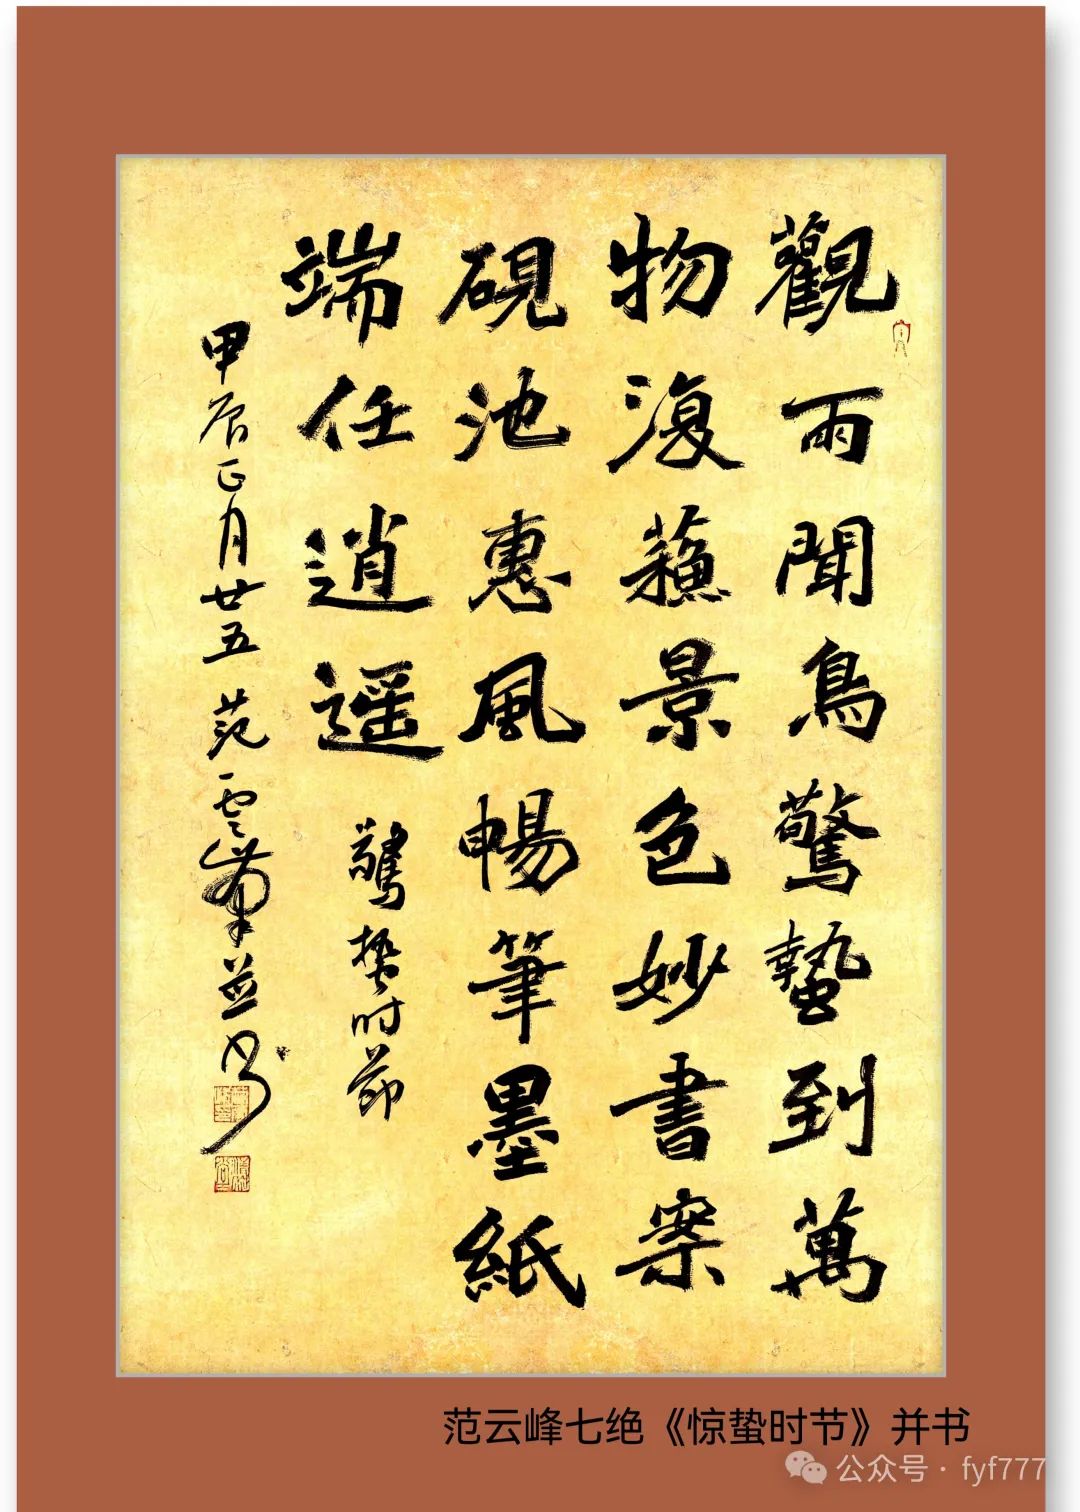 觀雨聞鳥驚蟄到萬
物復蘓景色妙書案
硯池惠風暢筆墨紙
端任逍遥
驚蟄时節
甲辰正月廿五范雲峯並书
范云峰七绝《惊蛰时节》并书
公众号·fyf777